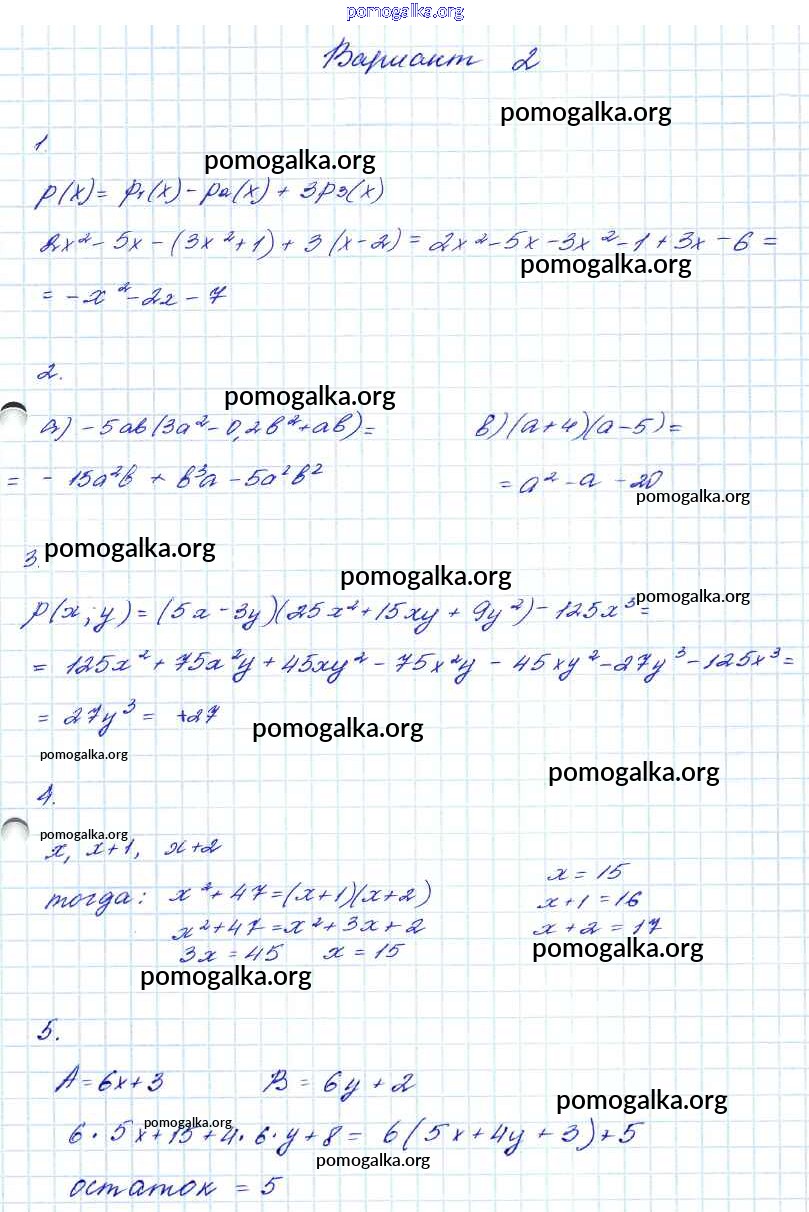 pomogalka.org
Вариант 2
pomogalka.org
1.
pomogalka.org
p(x) = p₁(x) - p₂(x) + 3p₃(x)
2x² - 5x - (3x² + 1) + 3(x - 2) = 2x² - 5x - 3x² - 1 + 3x - 6 =
pomogalka.org
= -x² - 2x - 7
2.
pomogalka.org
а) -5ab(3a² - 0,2b² + ab) =
= -15a²b + b³a - 5a²b²
в) (a+4)(a-5) =
= a² - a - 20
pomogalka.org
3.
pomogalka.org
pomogalka.org
pomogalka.org
p(x; y) = (5x - 3y)(25x² + 15xy + 9y²) - 125x³ =
= 125x² + 75x²y + 45xy² - 75x²y - 45xy² - 27y³ - 125x³ =
= 27y³ = +27
pomogalka.org
pomogalka.org
pomogalka.org
4.
pomogalka.org
x, x+1, x+2
тогда: x² + 47 = (x+1)(x+2)
x² + 47 = x² + 3x + 2
3x = 45 x = 15
x = 15
x+1 = 16
x+2 = 17
pomogalka.org
pomogalka.org
5.
A = 6x + 3 B = 6y + 2
pomogalka.org
pomogalka.org
6·5x + 15 + 4·6·y + 8 = 6(5x + 4y + 3) + 5
pomogalka.org
остаток = 5